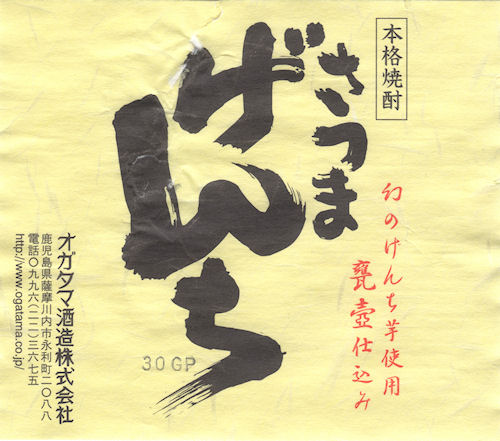 本格焼酎
さつま
げんち
幻のけんち芋使用
甕壺仕込み
30GP
オガタマ酒造株式会社
鹿児島県薩摩川内市永利町二〇八八
電話〇九九六(二二)三六七五
http://www.ogatama.co.jp/